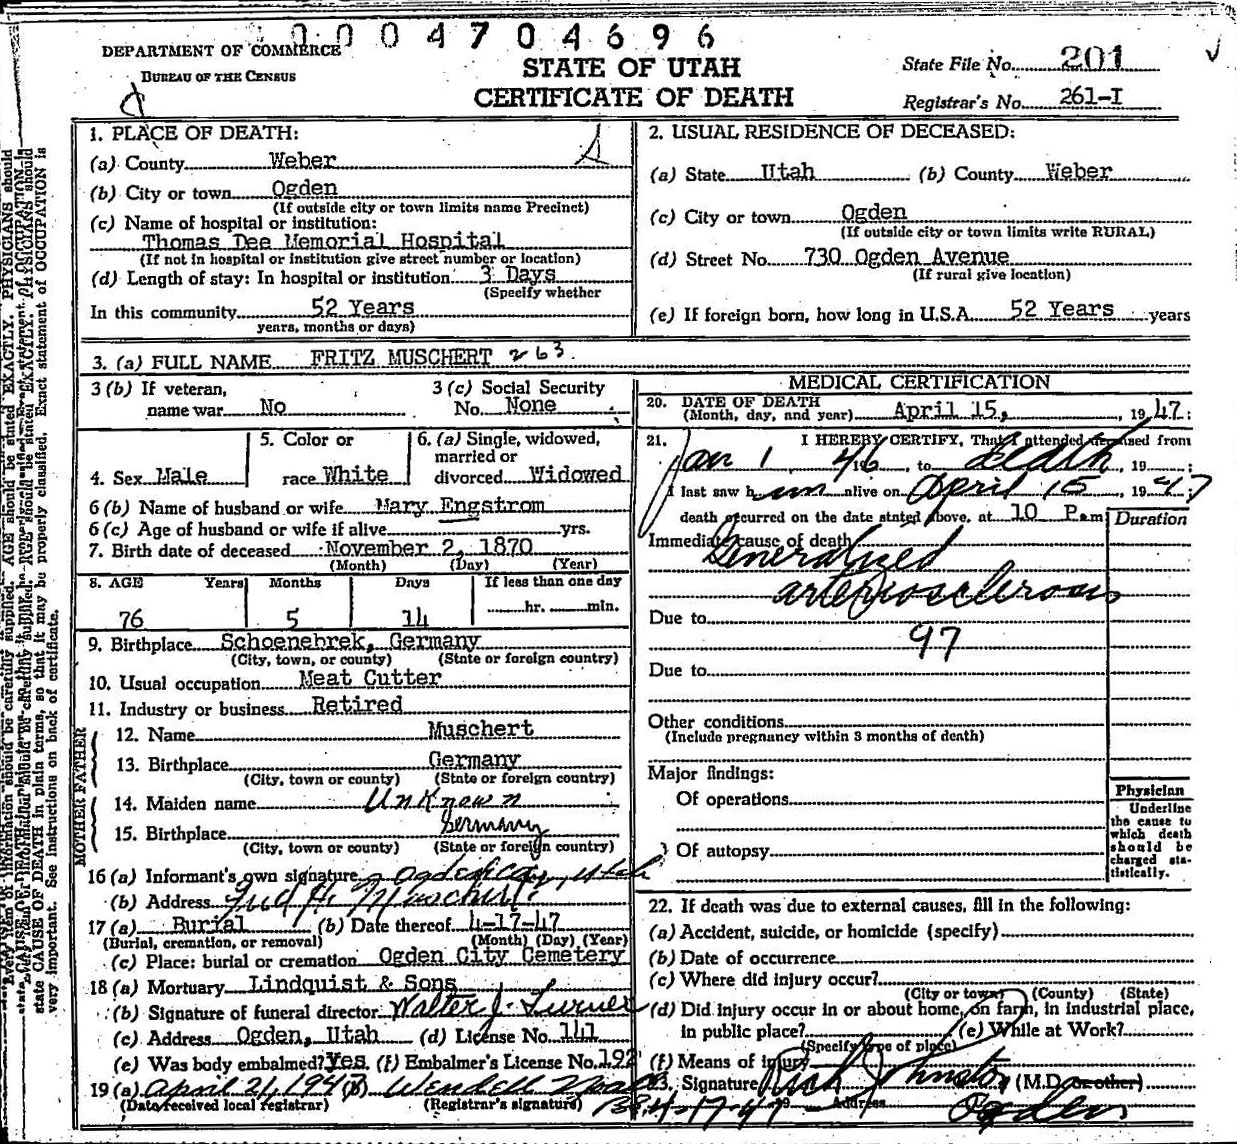 0004704696
DEPARTMENT OF COMMERCE
BUREAU OF THE CENSUS
STATE OF UTAH
CERTIFICATE OF DEATH
State File No. 201
Registrar's No. 261-I
1. PLACE OF DEATH:
(a) County Weber
(b) City or town Ogden
(If outside city or town limits name Precinct)
(c) Name of hospital or institution:
Thomas Dee Memorial Hospital
(If not in hospital or institution give street number or location)
(d) Length of stay: In hospital or institution 3 Days
(Specify whether
In this community 52 Years
years, months or days)
2. USUAL RESIDENCE OF DECEASED:
(a) State Utah (b) County Weber
(c) City or town Ogden
(If outside city or town limits write RURAL)
(d) Street No. 730 Ogden Avenue
(If rural give location)
(e) If foreign born, how long in U.S.A. 52 Years years
3. (a) FULL NAME FRITZ MUSCHERT 263.
3 (b) If veteran, name war No
3 (c) Social Security No. None
4. Sex Male
5. Color or race White
6. (a) Single, widowed, married or divorced Widowed
6 (b) Name of husband or wife Mary Engstrom
6 (c) Age of husband or wife if alive yrs.
7. Birth date of deceased November 2, 1870
(Month) (Day) (Year)
8. AGE Years Months Days If less than one day
76 5 14 hr. min.
9. Birthplace Schoenebrek, Germany
(City, town, or county) (State or foreign country)
10. Usual occupation Meat Cutter
11. Industry or business Retired
FATHER
12. Name Muschert
13. Birthplace Germany
(City, town or county) (State or foreign country)
MOTHER
14. Maiden name Unknown
15. Birthplace Germany
(City, town or county) (State or foreign country)
16 (a) Informant's own signature Ogden City, Utah
(b) Address Fred H. Muschert
17 (a) Burial (b) Date thereof 4-17-47
(Burial, cremation, or removal) (Month) (Day) (Year)
(c) Place: burial or cremation Ogden City Cemetery
18 (a) Mortuary Lindquist & Sons
(b) Signature of funeral director Walter J. Turner
(c) Address Ogden, Utah (d) License No. 141
(e) Was body embalmed? Yes. (f) Embalmer's License No. 192
19 (a) April 21, 1947 (b) Wendell
(Date received local registrar) (Registrar's signature)
MEDICAL CERTIFICATION
20. DATE OF DEATH
(Month, day, and year) April 15, , 1947:
21. I HEREBY CERTIFY, That I attended deceased from
Jan 1, 1946, to death, 19 ;
I last saw him alive on April 15, 1947;
death occurred on the date stated above, at 10 P.m.
Duration
Immediate cause of death
Generalized
arteriosclerosis
Due to
97
Due to
Other conditions
(Include pregnancy within 3 months of death)
Major findings:
Of operations
Of autopsy
Physician
Underline
the cause to
which death
should be
charged sta-
tistically.
22. If death was due to external causes, fill in the following:
(a) Accident, suicide, or homicide (specify)
(b) Date of occurrence
(c) Where did injury occur?
(City or town) (County) (State)
(d) Did injury occur in or about home, on farm, in industrial place,
in public place? (e) While at Work?
(Specify type of place)
(f) Means of injury
23. Signature (M.D. or other)
4-17-47 Address Ogden
state CAUSE OF DEATH in plain terms, so that it may be properly classified. Exact statement of OCCUPATION is
very important. See instructions on back of certificate.